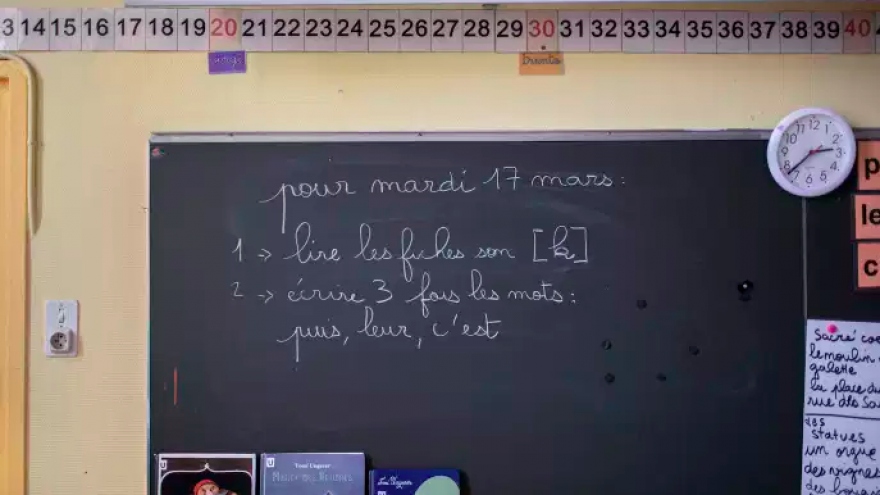 3 14 15 16 17 18 19 20 21 22 23 24 25 26 27 28 29 30 31 32 33 34 35 36 37 38 39 40
vingt
trente
pour mardi 17 mars :
1 → lire les fiches son [k]
2 → écrire 3 fois les mots :
puis, leur, c'est
12 1 2 3 4 5 6 7 8 9 10
p
le
c
Sacré coe
le moulin
galette
la place du
rue des Sa
des
statues
un orgue
des vignes
Tomi Ungerer